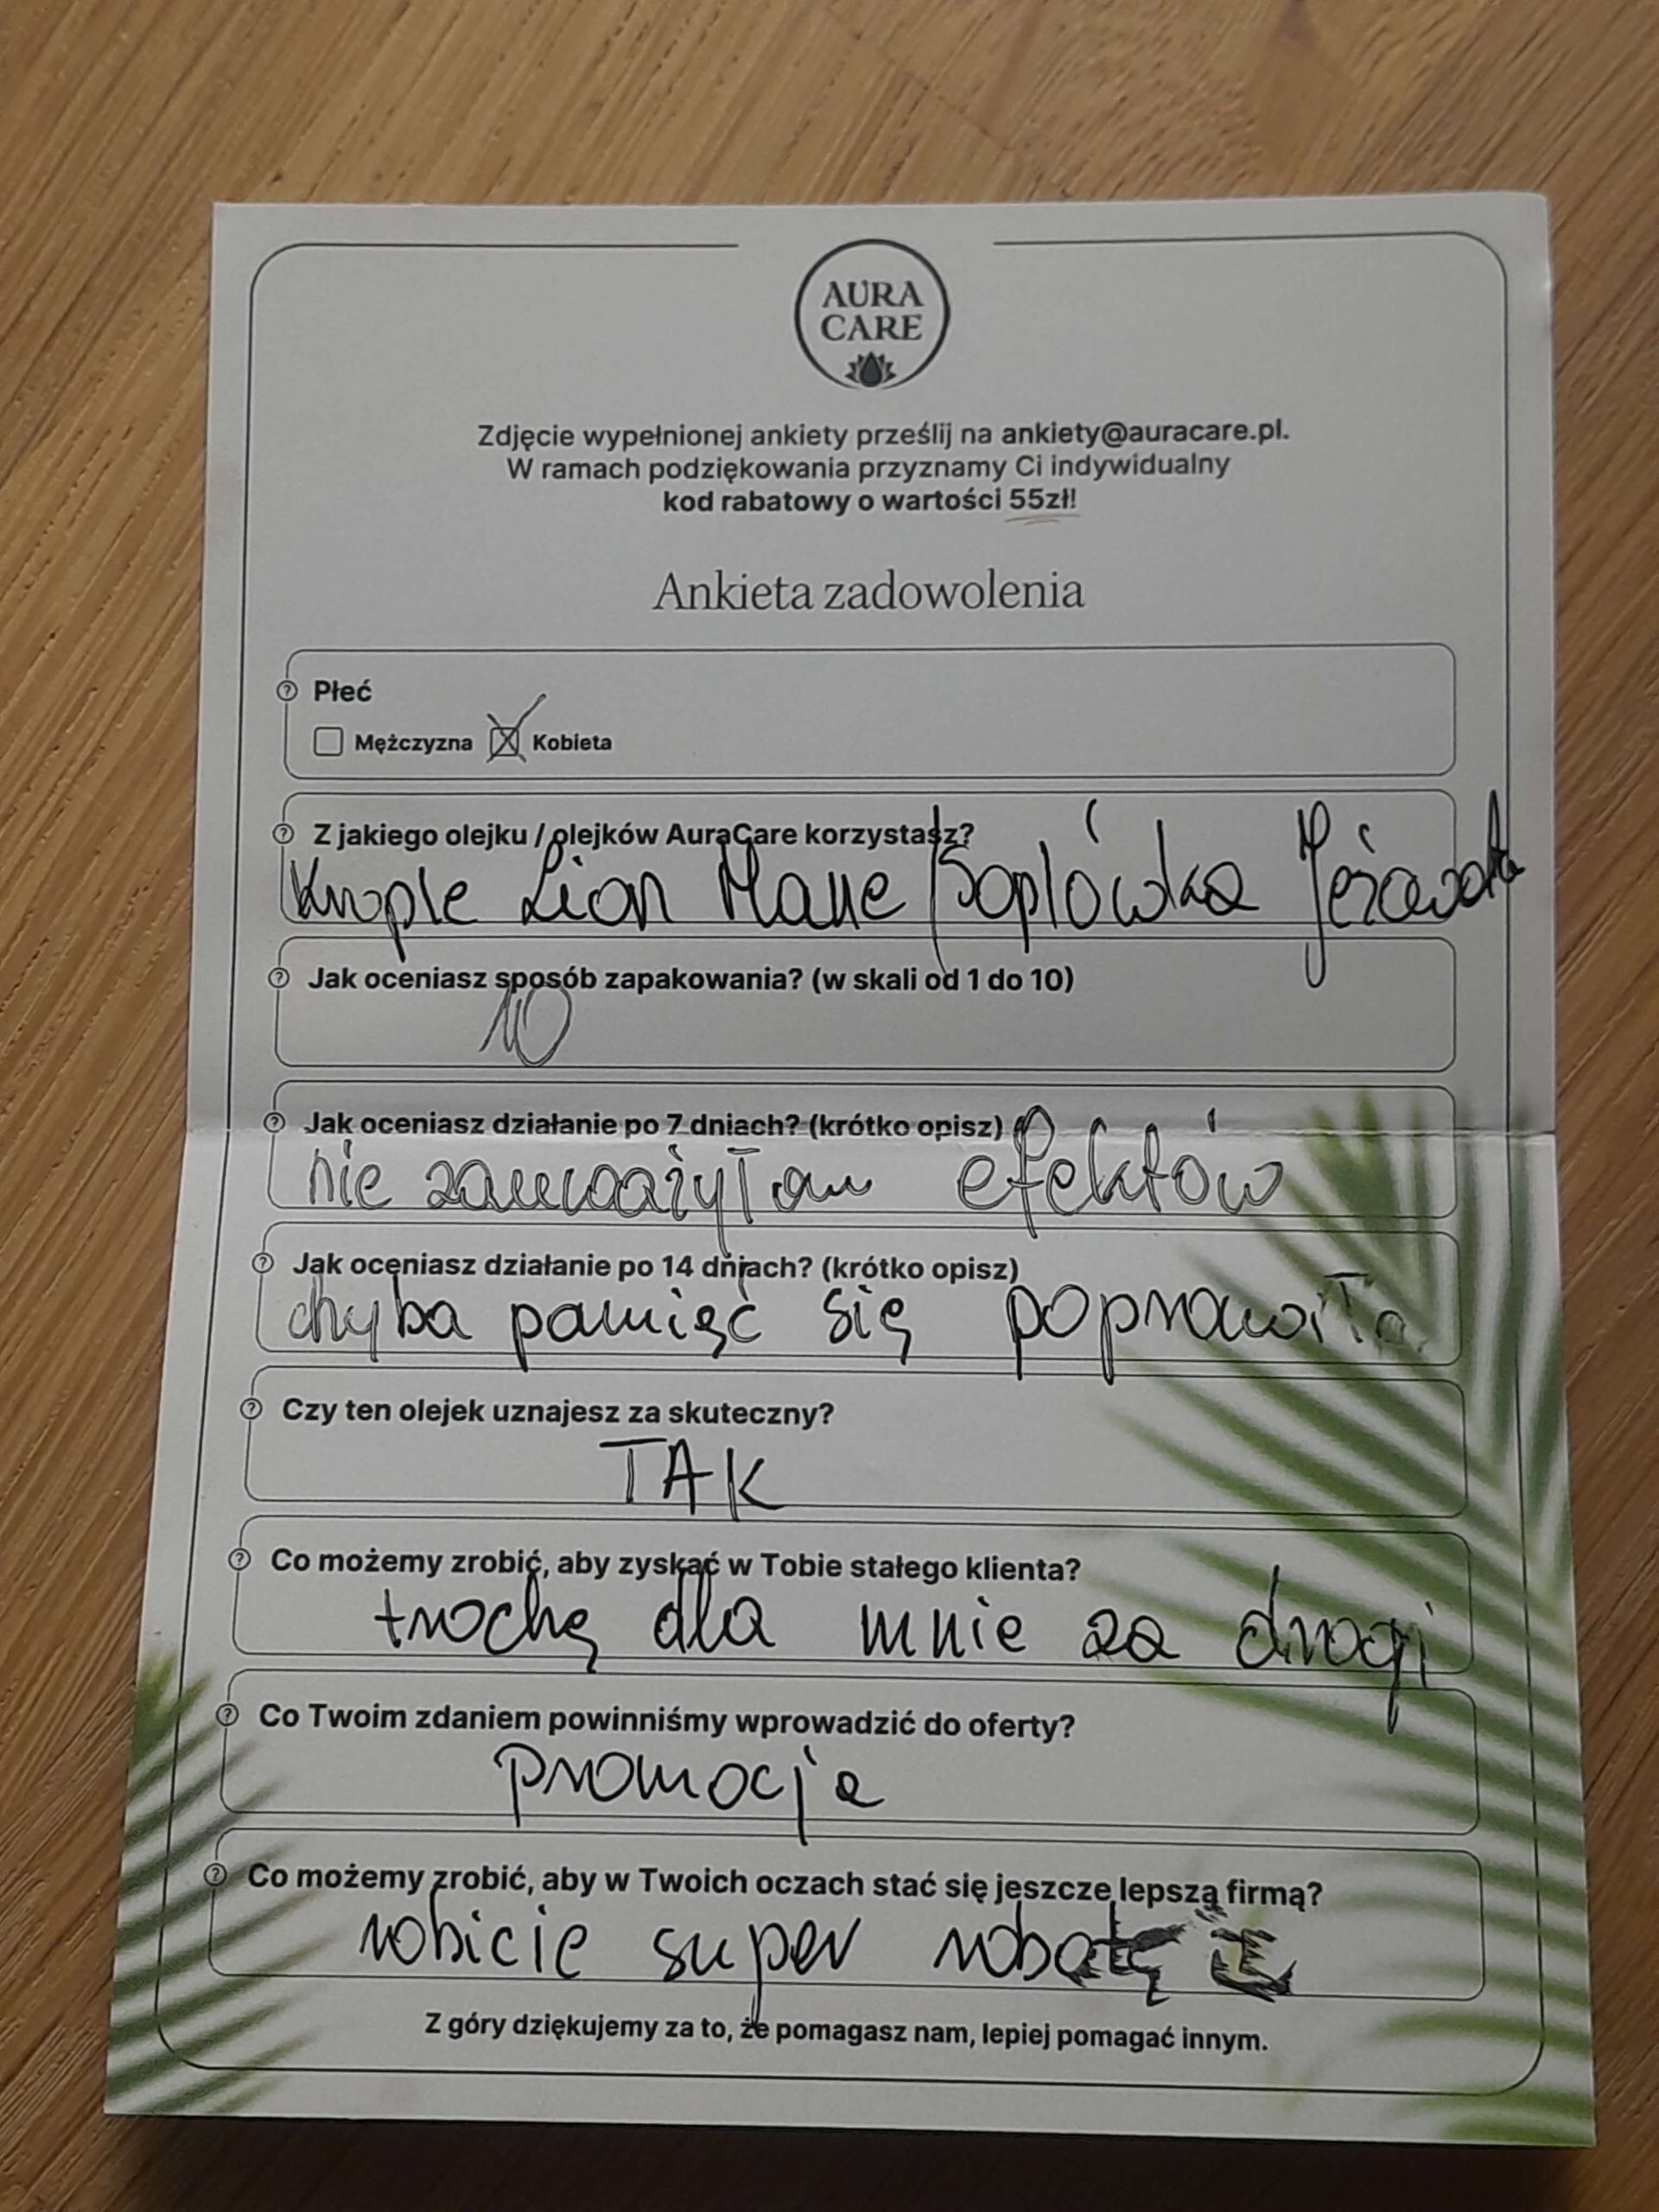 AURA
CARE
Zdjęcie wypełnionej ankiety prześlij na ankiety@auracare.pl.
W ramach podziękowania przyznamy Ci indywidualny
kod rabatowy o wartości 55zł!
Ankieta zadowolenia
Płeć
Mężczyzna Kobieta
Z jakiego olejku / olejków AuraCare korzystasz?
Krople Lion Mane / Soplówka Jeżowata
Jak oceniasz sposób zapakowania? (w skali od 1 do 10)
10
Jak oceniasz działanie po 7 dniach? (krótko opisz)
nie zauważyłam efektów
Jak oceniasz działanie po 14 dniach? (krótko opisz)
chyba pamięć się poprawiła
Czy ten olejek uznajesz za skuteczny?
TAK
Co możemy zrobić, aby zyskać w Tobie stałego klienta?
trochę dla mnie za drogi
Co Twoim zdaniem powinniśmy wprowadzić do oferty?
promocja
Co możemy zrobić, aby w Twoich oczach stać się jeszcze lepszą firmą?
robicie super robotę
Z góry dziękujemy za to, że pomagasz nam, lepiej pomagać innym.